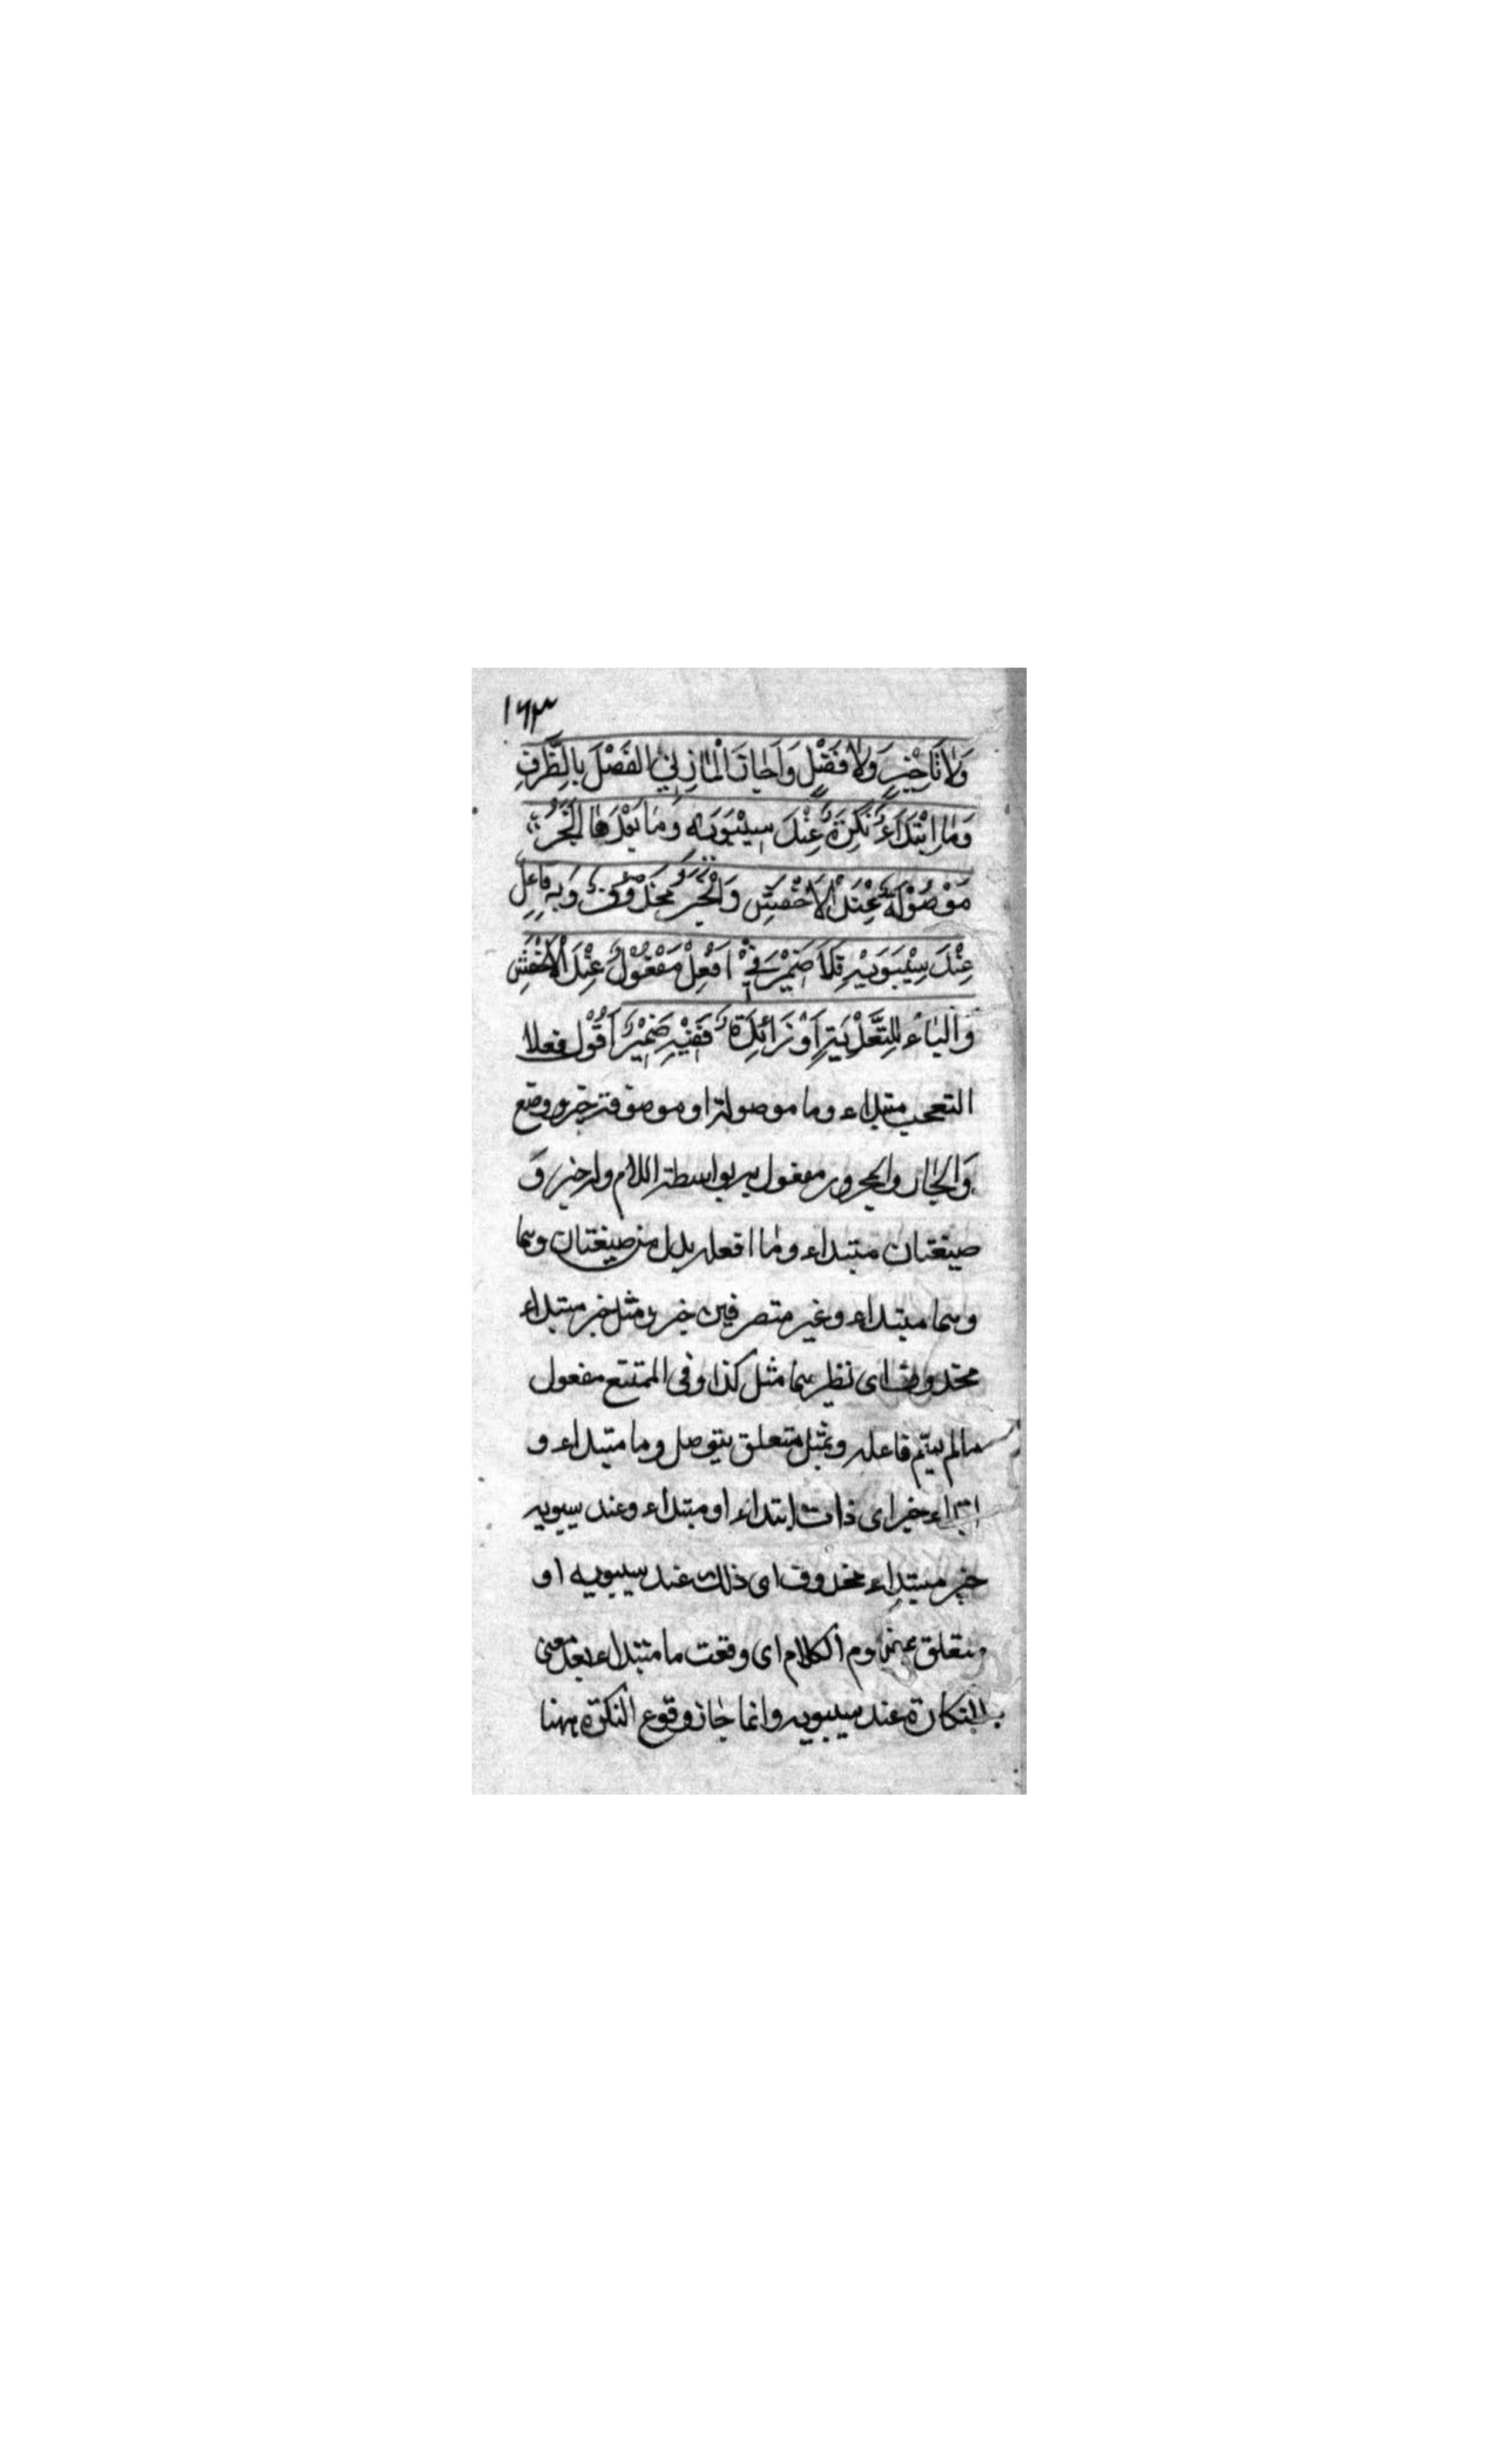 ١٦٣
وَلَا تَاخِيْرٍ وَلَا فَصْلٍ وَاَجَازَ الْمَازِنِيُّ الْفَصْلَ بِالظَّرْفِ
وَمَا اِبْتَدَاءٌ نَكِرَةٌ عِنْدَ سِيْبَوَيْهِ وَمَا بَعْدَهَا الْخَبَرُ
مَوْصُوْلَةٌ عِنْدَ الْاَخْفَشِ وَالْخَبَرُ مَحْذُوْفٌ وَبِهِ فَاعِلٌ
عِنْدَ سِيْبَوَيْهِ فَلَا ضَمِيْرَ فِيْ اَفْعِلْ مَفْعُوْلٌ عِنْدَ الْاَخْفَشِ
وَالْبَاءُ لِلتَّعْدِيَةِ اَوْ زَائِدَةٌ فَفِيْهِ ضَمِيْرٌ اَقُوْلُ فعلا
التعجب مبتداء وما موصولة او موصوفة خبره وضع
وَالجار والمجرور مفعول به بواسطة اللام وله خبر وَ
صيغتان مبتداء وما افعله بدل من صيغتان وهما
وهما مبتداء وغير متصرفين خبره مثل خبر مبتداء
محذوف اى نظيرهما مثل كذا وفى الممتنع مفعول
مالم يسم فاعله وبمثل متعلق بيتوصل وما مبتداء و
ابتداء خبر اى ذات ابتداء او مبتداء وعند سيبويه
خبر مبتداء محذوف اى ذلك عند سيبويه او
متعلق الكلام اى وقعت ما مبتداء بعد معنى
النكارة عند سيبويه وانما جاز وقوع النكرة ههنا